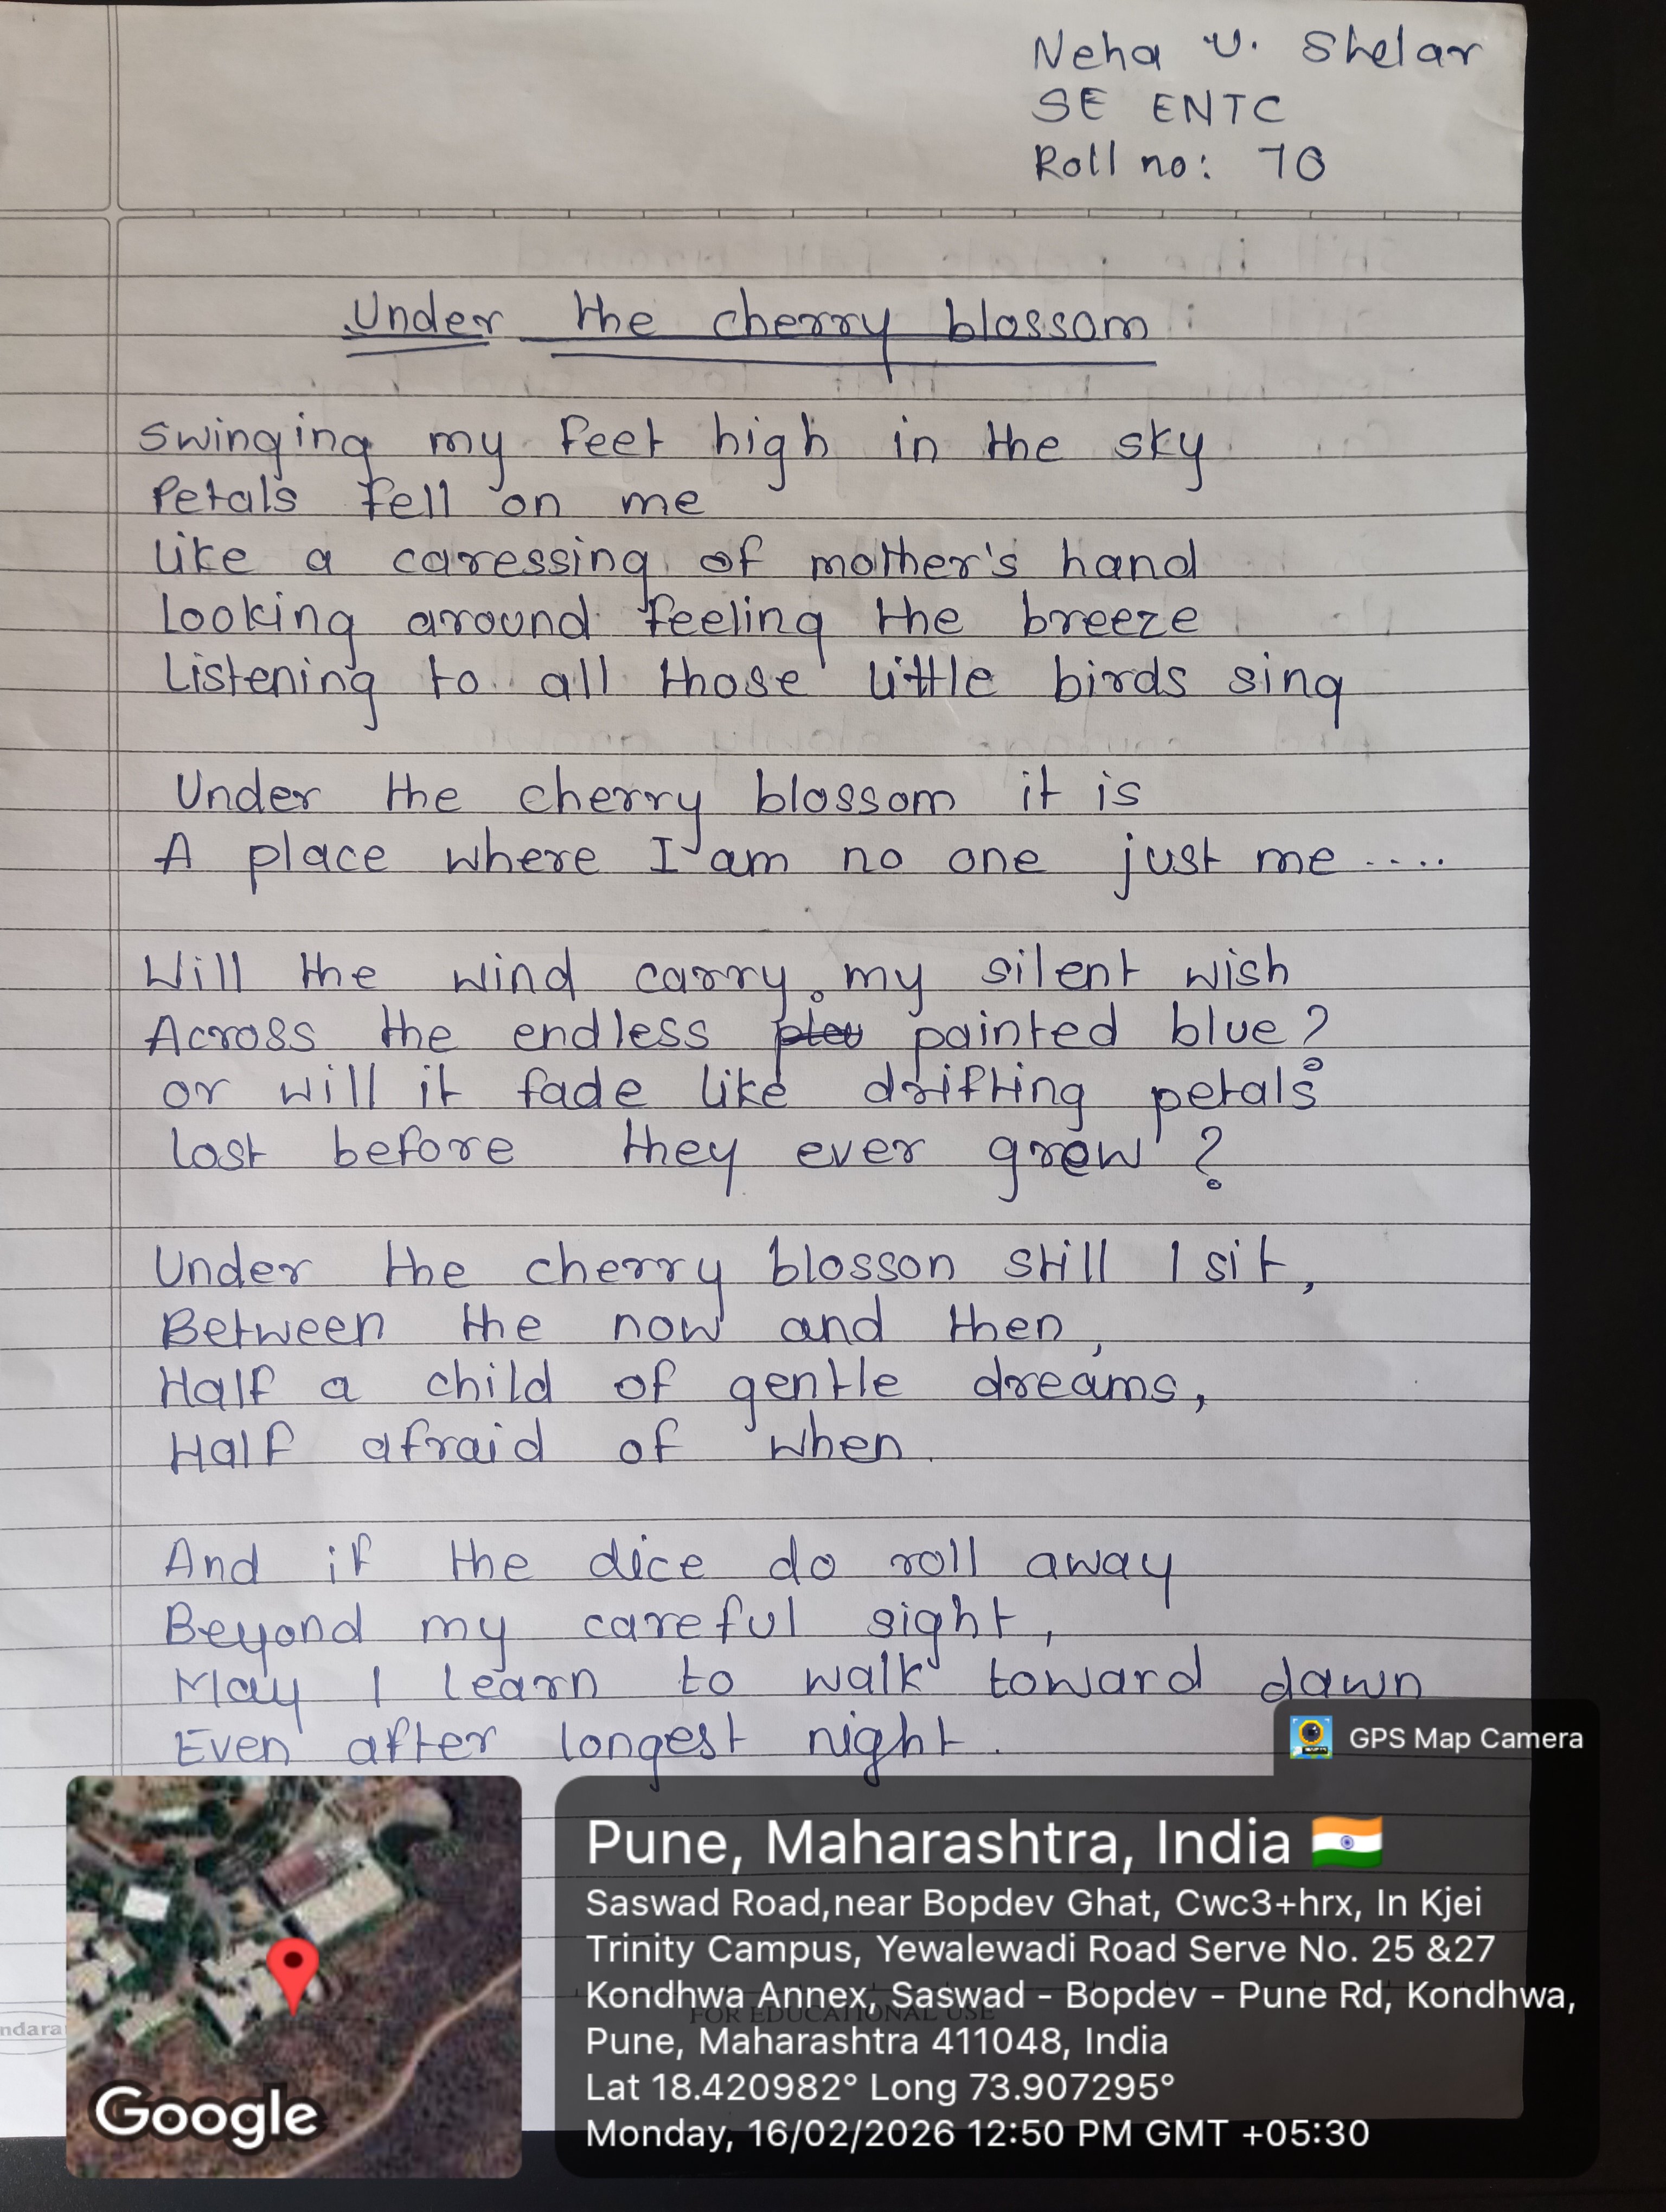 Neha V. Shelar
SE ENTC
Roll no: 70
Under the cherry blossom
Swinging my feet high in the sky
Petals fell on me
like a caressing of mother's hand
Looking around feeling the breeze
Listening to all those little birds sing
Under the cherry blossom it is
A place where I am no one just me ....
Will the wind carry my silent wish
Across the endless painted blue?
or will it fade like drifting petals
lost before they ever grew?
Under the cherry blosson still I sit,
Between the now and then,
Half a child of gentle dreams,
Half afraid of when.
And if the dice do roll away
Beyond my careful sight,
May I learn to walk toward dawn
Even after longest night.
GPS Map Camera
Pune, Maharashtra, India
Saswad Road,near Bopdev Ghat, Cwc3+hrx, In Kjei
Trinity Campus, Yewalewadi Road Serve No. 25 &27
Kondhwa Annex, Saswad - Bopdev - Pune Rd, Kondhwa,
FOR EDUCATIONAL USE
Pune, Maharashtra 411048, India
Lat 18.420982° Long 73.907295°
Monday, 16/02/2026 12:50 PM GMT +05:30
ndara
Google